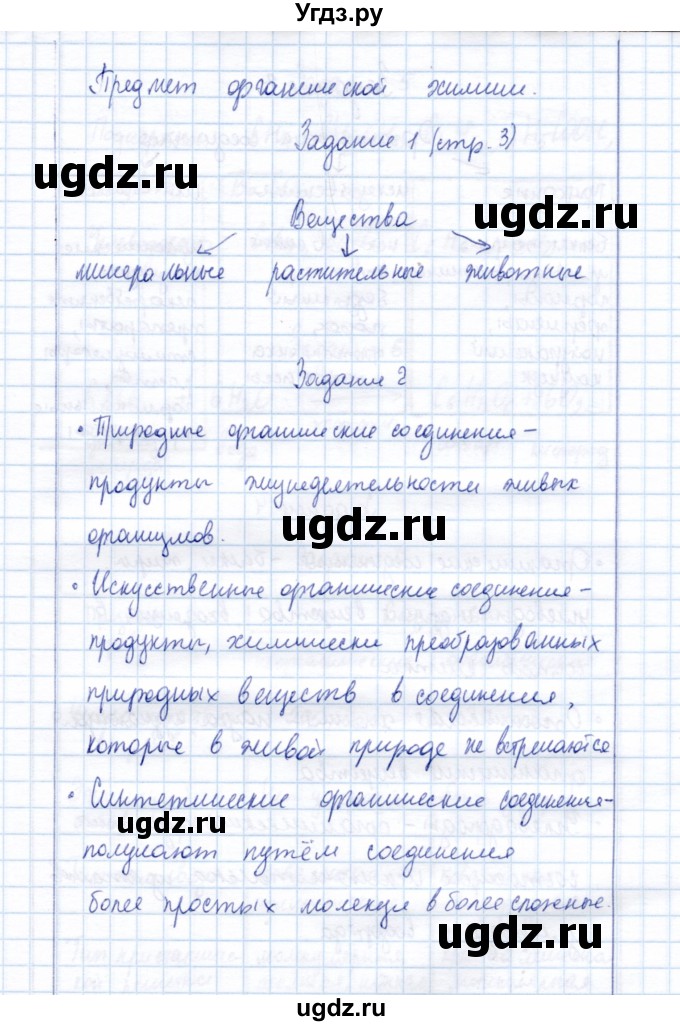 Угдз.ру
Предмет органической химии.
Задание 1 (стр. 3)
ugdz.ru
ugdz.ru
Вещества
минеральные растительные животные
Задание 2
ugdz.ru
• Природные органические соединения –
продукты жизнедеятельности живых
организмов.
ugdz.ru
• Искусственные органические соединения –
продукты, химически преобразованных
природных веществ в соединения,
которые в живой природе не встречаются
• Синтетические органические соединения-
ugdz.ru
получают путём соединения
более простых молекул в более сложные.
ugdz.ru
ugdz.ru